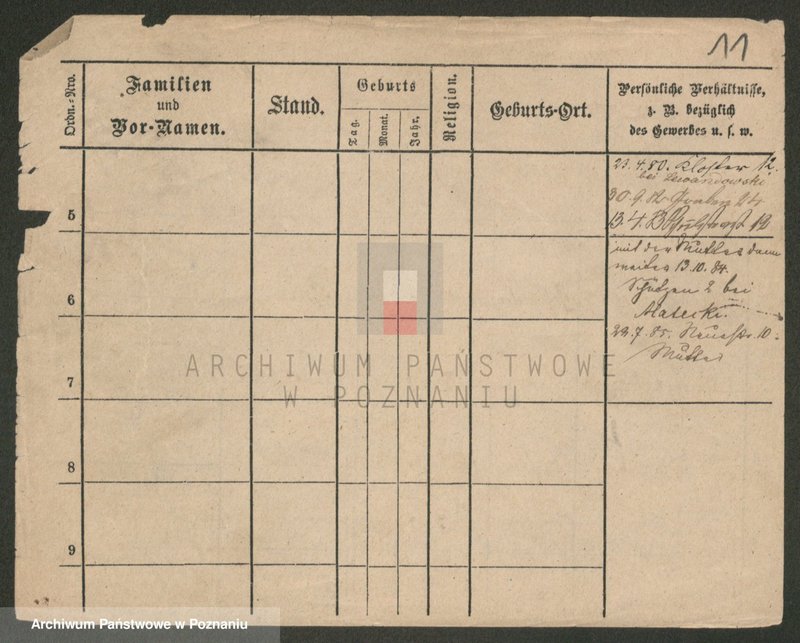 11
Ordn.-Nro.
Familien
und
Vor-Namen.
Stand.
Geburts
Tag.
Monat.
Jahr.
Religion.
Geburts-Ort.
Persönliche Verhältnisse,
z. B. bezüglich
des Gewerbes u. s. w.
23.4.80. Kloster 12.
bei Lewandowski
30.9.82 Graben 24
5
13.4.
mit der Mutter dann
weiter 13.10.84.
Schützen 2 bei
6
Matecki.
22.7.85. Neuestr. 10.
Mutter
7
8
9
ARCHIWUM PAŃSTWOWE
W POZNANIU
Archiwum Państwowe w Poznaniu